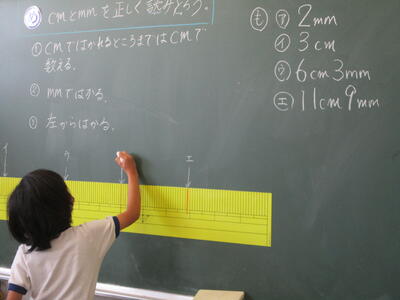 cmとmmを正しく読みとろう。
① cmではかれるところまではcmで
数える。
② mmではかる。
③ 左からはかる。
も ㋐ 2mm
㋑ 3cm
㋒ 6cm3mm
㋓ 11cm9mm
イ
ウ
エ